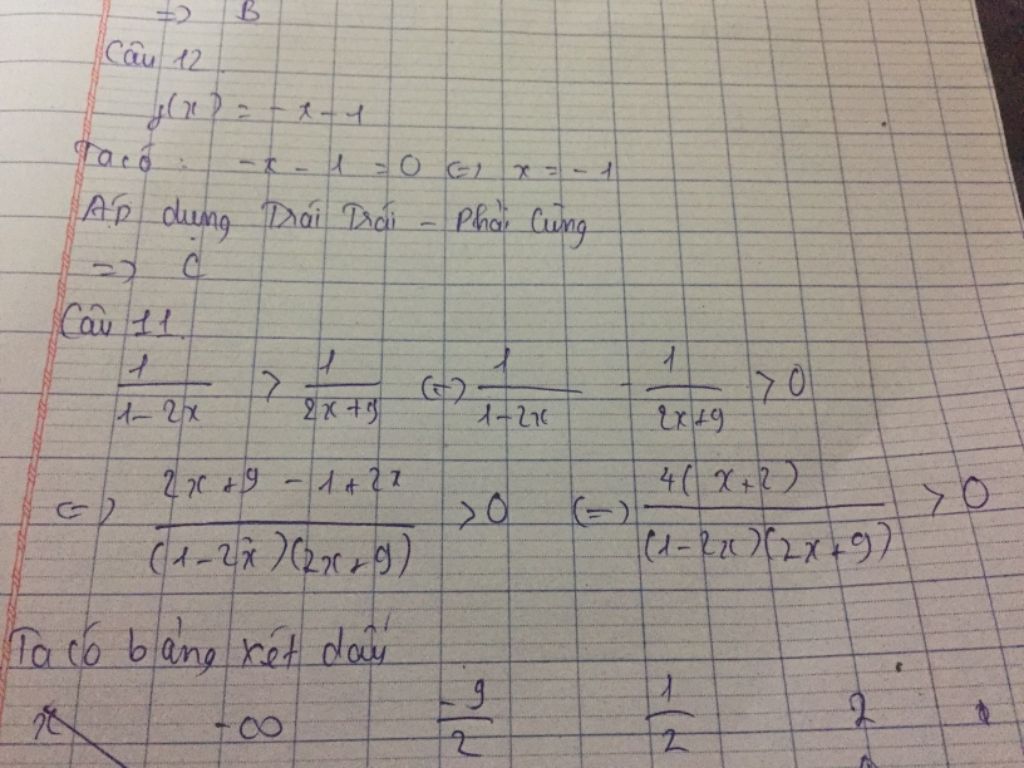 => B
Câu 12
f(x) = -x-1
Ta có : -x - 1 = 0 <=> x = -1
Áp dụng Trái Trái - Phải Cùng
=> C
Câu 11.
1/(1-2x) > 1/(2x+9) <=> 1/(1-2x) - 1/(2x+9) > 0
<=> (2x+9-1+2x)/((1-2x)(2x+9)) > 0 <=> 4(x+2)/((1-2x)(2x+9)) > 0
Ta có bảng xét dấu
x -∞ -9/2 1/2 2